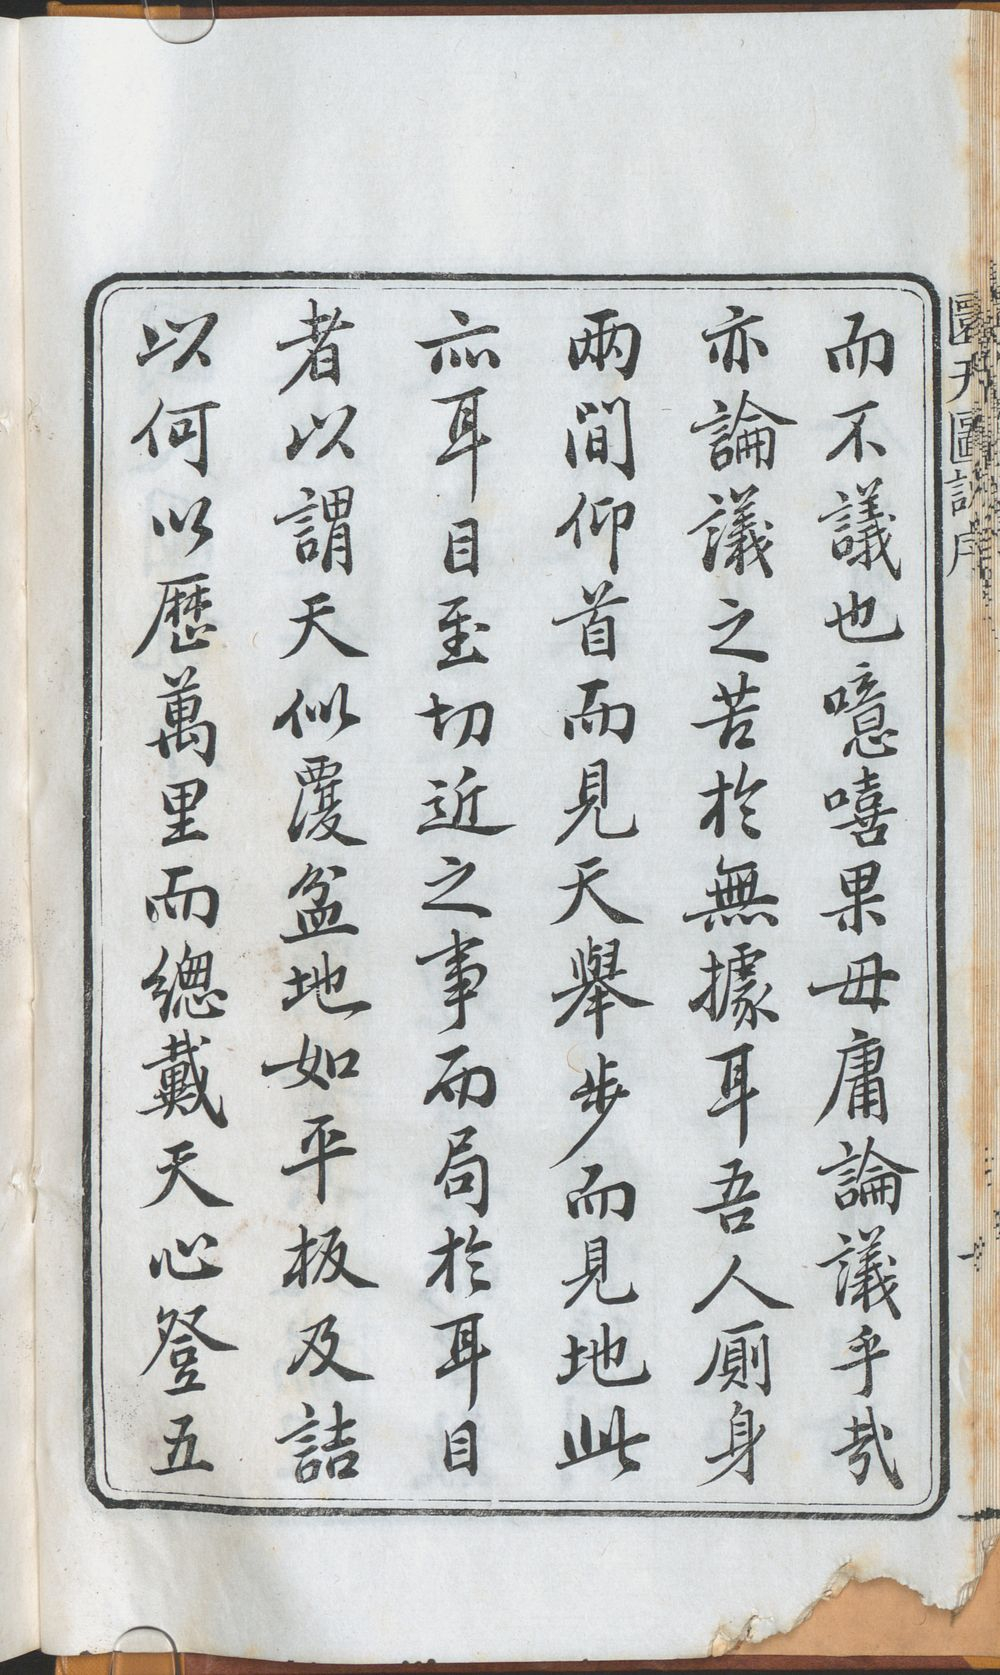 圜天圖說序
而不議也噫嘻果毋庸論議乎哉
亦論議之苦於無據耳吾人厠身
兩間仰首而見天舉步而見地此
亦耳目至切近之事而局於耳目
者以謂天似覆盆地如平板及詰
以何以歷萬里而總戴天心登五